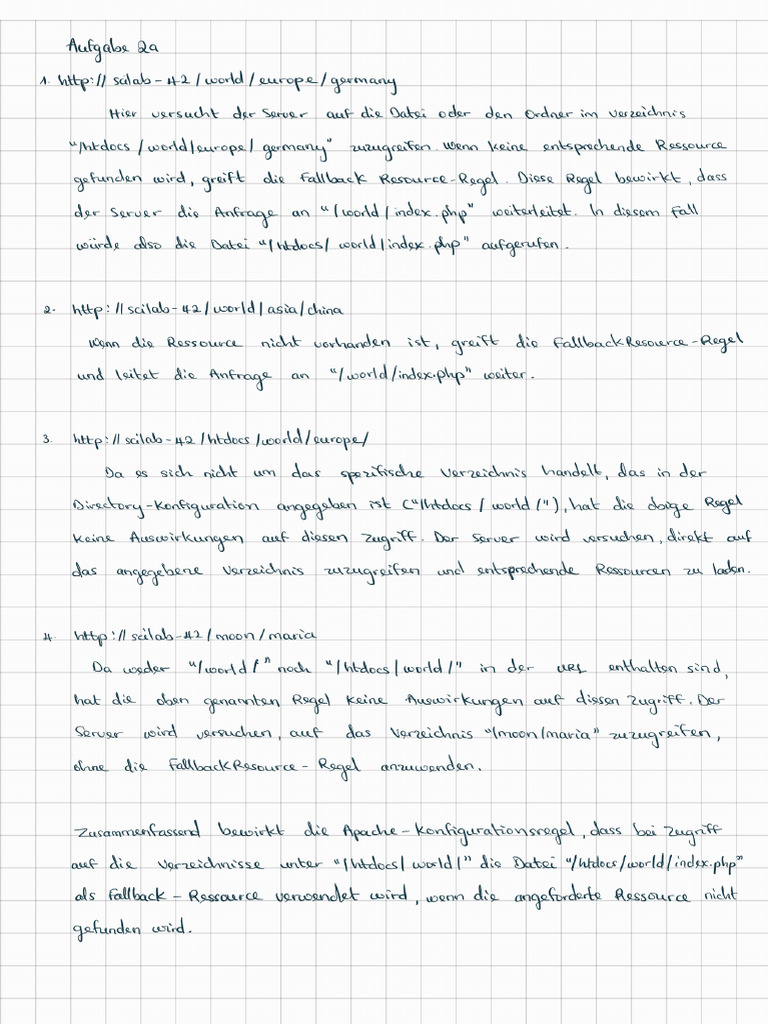 Aufgabe 2a
1. http://scilab-42/world/europe/germany
Hier versucht der Server auf die Datei oder den Ordner im Verzeichnis
"/htdocs/world/europe/germany" zuzugreifen. Wenn keine entsprechende Ressource
gefunden wird, greift die Fallback Resource-Regel. Diese Regel bewirkt, dass
der Server die Anfrage an "/world/index.php" weiterleitet. In diesem Fall
würde also die Datei "/htdocs/world/index.php" aufgerufen.
2. http://scilab-42/world/asia/china
Wenn die Ressource nicht vorhanden ist, greift die FallbackResource-Regel
und leitet die Anfrage an "/world/index.php" weiter.
3. http://scilab-42/htdocs/world/europe/
Da es sich nicht um das spezifische Verzeichnis handelt, das in der
Directory-Konfiguration angegeben ist ("/htdocs/world/"), hat die obige Regel
keine Auswirkungen auf diesen Zugriff. Der Server wird versuchen, direkt auf
das angegebene Verzeichnis zuzugreifen und entsprechende Ressourcen zu laden.
4. http://scilab-42/moon/maria
Da weder "/world/" noch "/htdocs/world/" in der URL enthalten sind,
hat die oben genannten Regel keine Auswirkungen auf diesen Zugriff. Der
Server wird versuchen, auf das Verzeichnis "/moon/maria" zuzugreifen,
ohne die FallbackResource-Regel anzuwenden.
Zusammenfassend bewirkt die Apache-Konfigurationsregel, dass bei Zugriff
auf die Verzeichnisse unter "/htdocs/world/" die Datei "/htdocs/world/index.php"
als Fallback-Ressource verwendet wird, wenn die angeforderte Ressource nicht
gefunden wird.